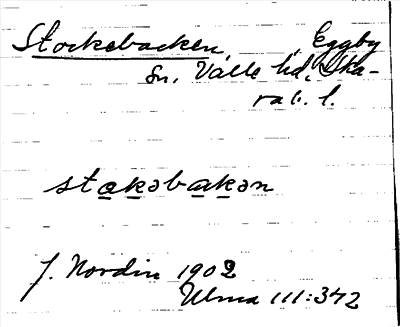 Stockebacken, Eggby
Sn. Valle hd, Ska-
rab. l.
stakəbakən
J. Nordin 1902
Ulma 111:342